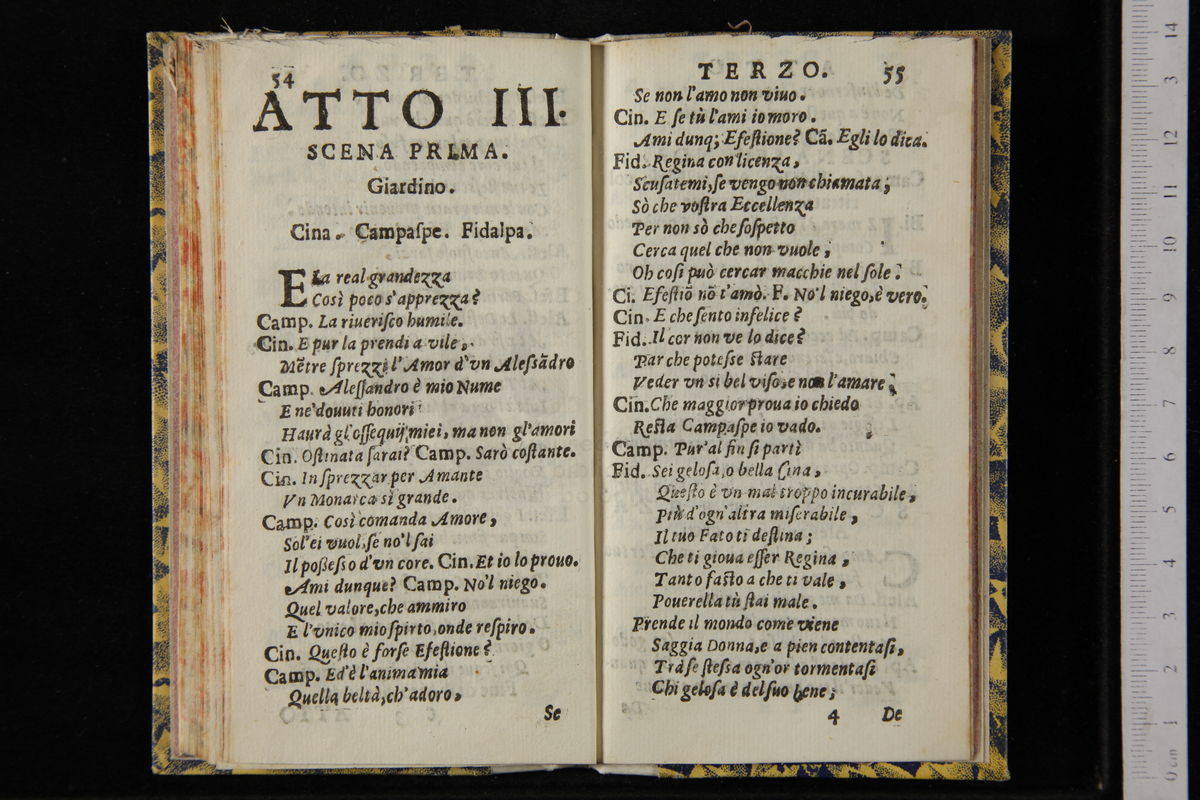 54
ATTO III.
SCENA PRIMA.
Giardino.
Cina. Campaſpe. Fidalpa.
ELa real grandezza
Così poco s'apprezza?
Camp. La riueriſco humile.
Cin. E pur la prendi a vile,
Mẽtre ſprezzi l'Amor d'vn Aleſsãdro
Camp. Aleſſandro è mio Nume
E ne'douuti honori
Haurà gl'oſſequij miei, ma non gl'amori
Cin. Oſtinata ſarai? Camp. Sarò coſtante.
Cin. In ſprezzar per Amante
Vn Monarca sì grande.
Camp. Così comanda Amore,
Sol'ei vuol, ſe no'l ſai
Il poſseſso d'vn core. Cin. Et io lo prouo.
Ami dunque? Camp. No'l niego.
Quel valore, che ammiro
E l'vnico mio ſpirto, onde reſpiro.
Cin. Queſto è forſe Efeſtione?
Camp. Ed'è l'anima mia
Quella beltà, ch'adoro,
Se
TERZO. 55
Se non l'amo non viuo.
Cin. E ſe tù l'ami io moro.
Ami dunq; Efeſtione? Cã. Egli lo dica.
Fid. Regina con licenza,
Scuſatemi, ſe vengo non chiamata;
Sò che voſtra Eccellenza
Per non sò che ſoſpetto
Cerca quel che non vuole;
Oh coſi può cercar macchie nel ſole.
Ci. Efeſtiõ nõ t'amò. F. No'l niego, è vero.
Cin. E che ſento infelice?
Fid. Il cor non ve lo dice?
Par che poteſse ſtare
Veder vn si bel viſo, e non l'amare;
Cin. Che maggior proua io chiedo
Reſta Campaſpe io vado.
Camp. Pur'al fin ſi partì
Fid. Sei geloſa, o bella Cina,
Queſto è vn mal troppo incurabile,
Più d'ogn'altra miſerabile,
Il tuo Fato ti deſtina;
Che ti gioua eſſer Regina,
Tanto faſto a che ti vale,
Pouerella tù ſtai male.
Prende il mondo come viene
Saggia Donna, e a pien contentaſi,
Trà ſe ſteſsa ogn'or tormentaſi
Chi geloſa è del ſuo bene;
4 De
0 cm 1 2 3 4 5 6 7 8 9 10 11 12 13 14